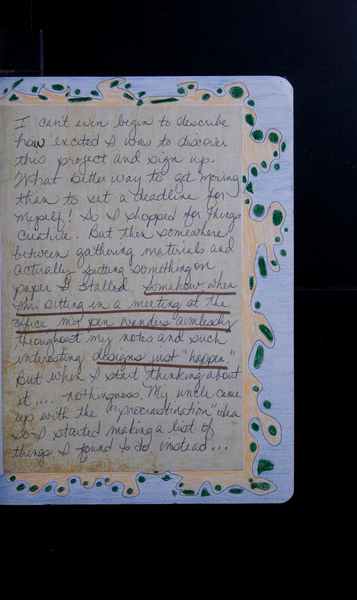 I can't even begin to describe
how excited I was to discover
this project and sign up.
What better way to get moving
than to set a deadline for
myself! So I shopped for things
creative. But then somewhere
between gathering materials and
actually putting something on
paper I stalled. Somehow when
I'm sitting in a meeting at the
office my pen wanders aimlessly
throughout my notes and such
interesting designs just "happen."
But when I start thinking about
it.... nothingness. My uncle came
up with the "procrastination" idea
so I started making a list of
things I found to do instead...